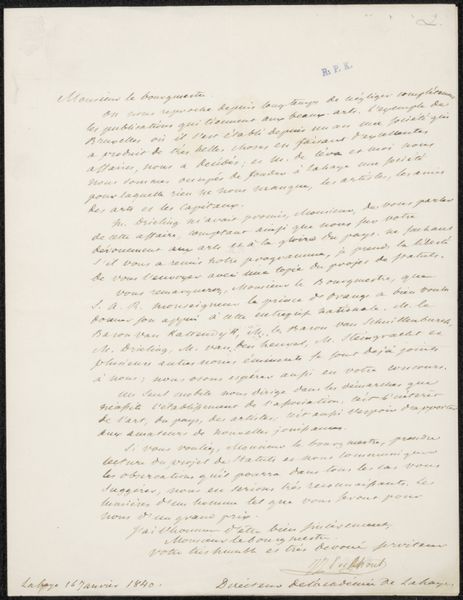 2.
R. P. K.
Monsieur le bourgmestre.
On nous reproche depuis long-temps de négliger complètement
les publications qui tiennent aux beaux-arts. L'exemple de
Bruxelles où il s'est établi depuis un an une société qui
a produit de très belles choses en faisant d'excellentes
affaires, nous a décidés; et M. de et moi nous
nous sommes occupés de fonder à Lahaye une société
pour laquelle rien ne nous manque, les artistes, les amis
des arts et les capitaux.
M. Drieling m'avait promis, Monsieur, de vous parler
de cette affaire, comptant ainsi que nous sur votre
dévouement aux arts et à la gloire du pays. ne sachant
s'il vous a remis notre programme, je prends la liberté
de vous l'envoyer avec une copie du projet de statuts.
Vous remarquerez, Monsieur le Bourgmestre, que
S. A. R. monseigneur le prince d'Orange a bien voulu
donner son appui à cette entreprise nationale. M. le
Baron van M. le Baron van
M. Drieling, M. van den heuvel, M. Steengracht et
plusieurs autres noms éminents se sont déjà joints
à nous; nous osons espérer aussi en votre concours.
Un seul mobile nous dirige dans les démarches que
nécessite l'établissement de l'association, c'est l'intérêt
de l'art, du pays, des artistes, c'est aussi l'espoir d'apporter
aux amateurs de nouvelles jouissances.
Si vous vouliez, Monsieur le bourgmestre, prendre
lecture du projet de statuts et nous communiquer
les observations qu'il pourra dans tous les cas vous
suggérer, nous en serions très reconnaissants. Les
lumières d'un homme tel que vous seront pour
nous d'un grand prix.
J'ai l'honneur d'être bien sincèrement,
Monsieur le bourgmestre,
votre très humble et très dévoué serviteur
Lahaye 16 Janvier 1840.
Directeur de l'académie de Lahaye